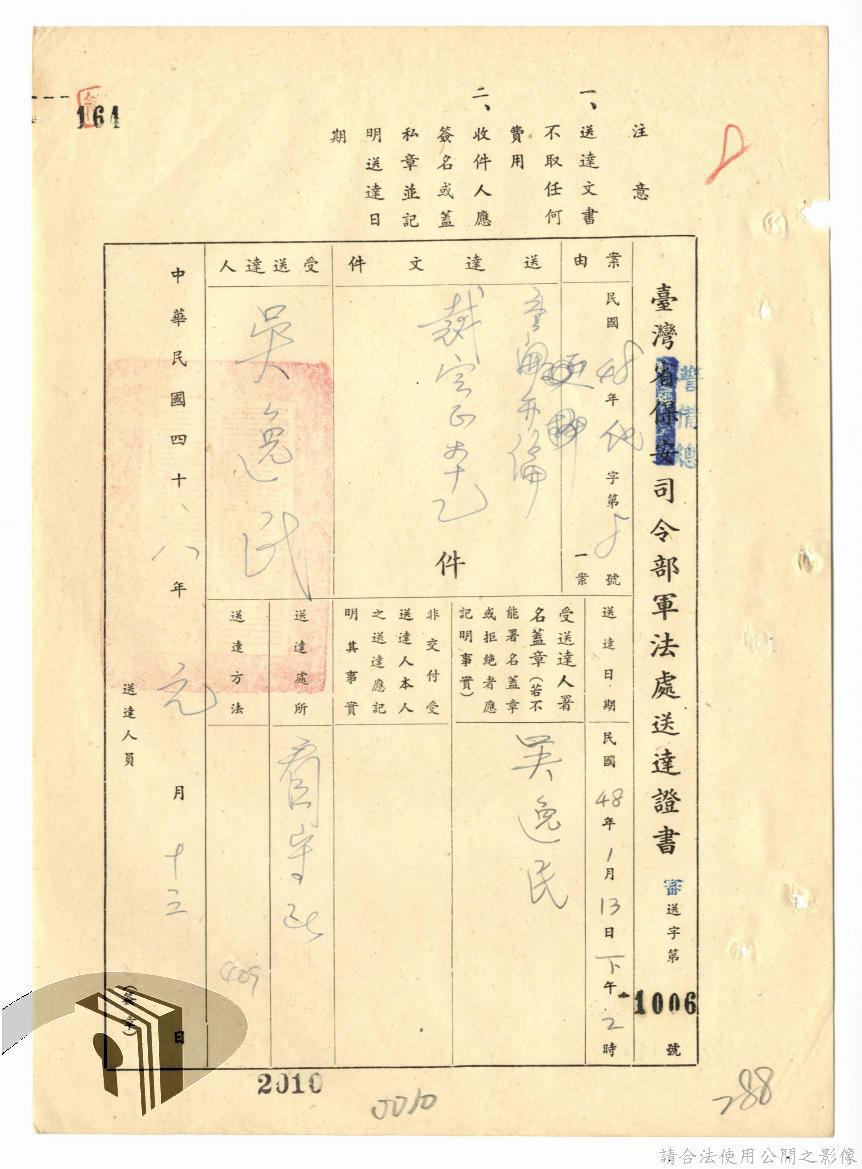 164
注意
一、送達文書
不取任何
費用
二、收件人應
簽名或蓋
私章並記
明送達日
期
臺灣省保安司令部軍法處送達證書
警備總
審送字第
1006
號
案由
民國48年他字第5號
一案
送達日期
民國48年1月13日下午2時
送達文件
裁定正本乙
件
受送達人署
名蓋章(若不
能署名蓋章
或拒絕者應
記明事實)
吳逸民
非交付受
送達人本人
之送達應記
明其事實
受送達人
吳逸民
送達處所
看守所
送達方法
409
中華民國四十八年元月十三日
送達人員
(簽章)
2010
0010
288
請合法使用公開之影像